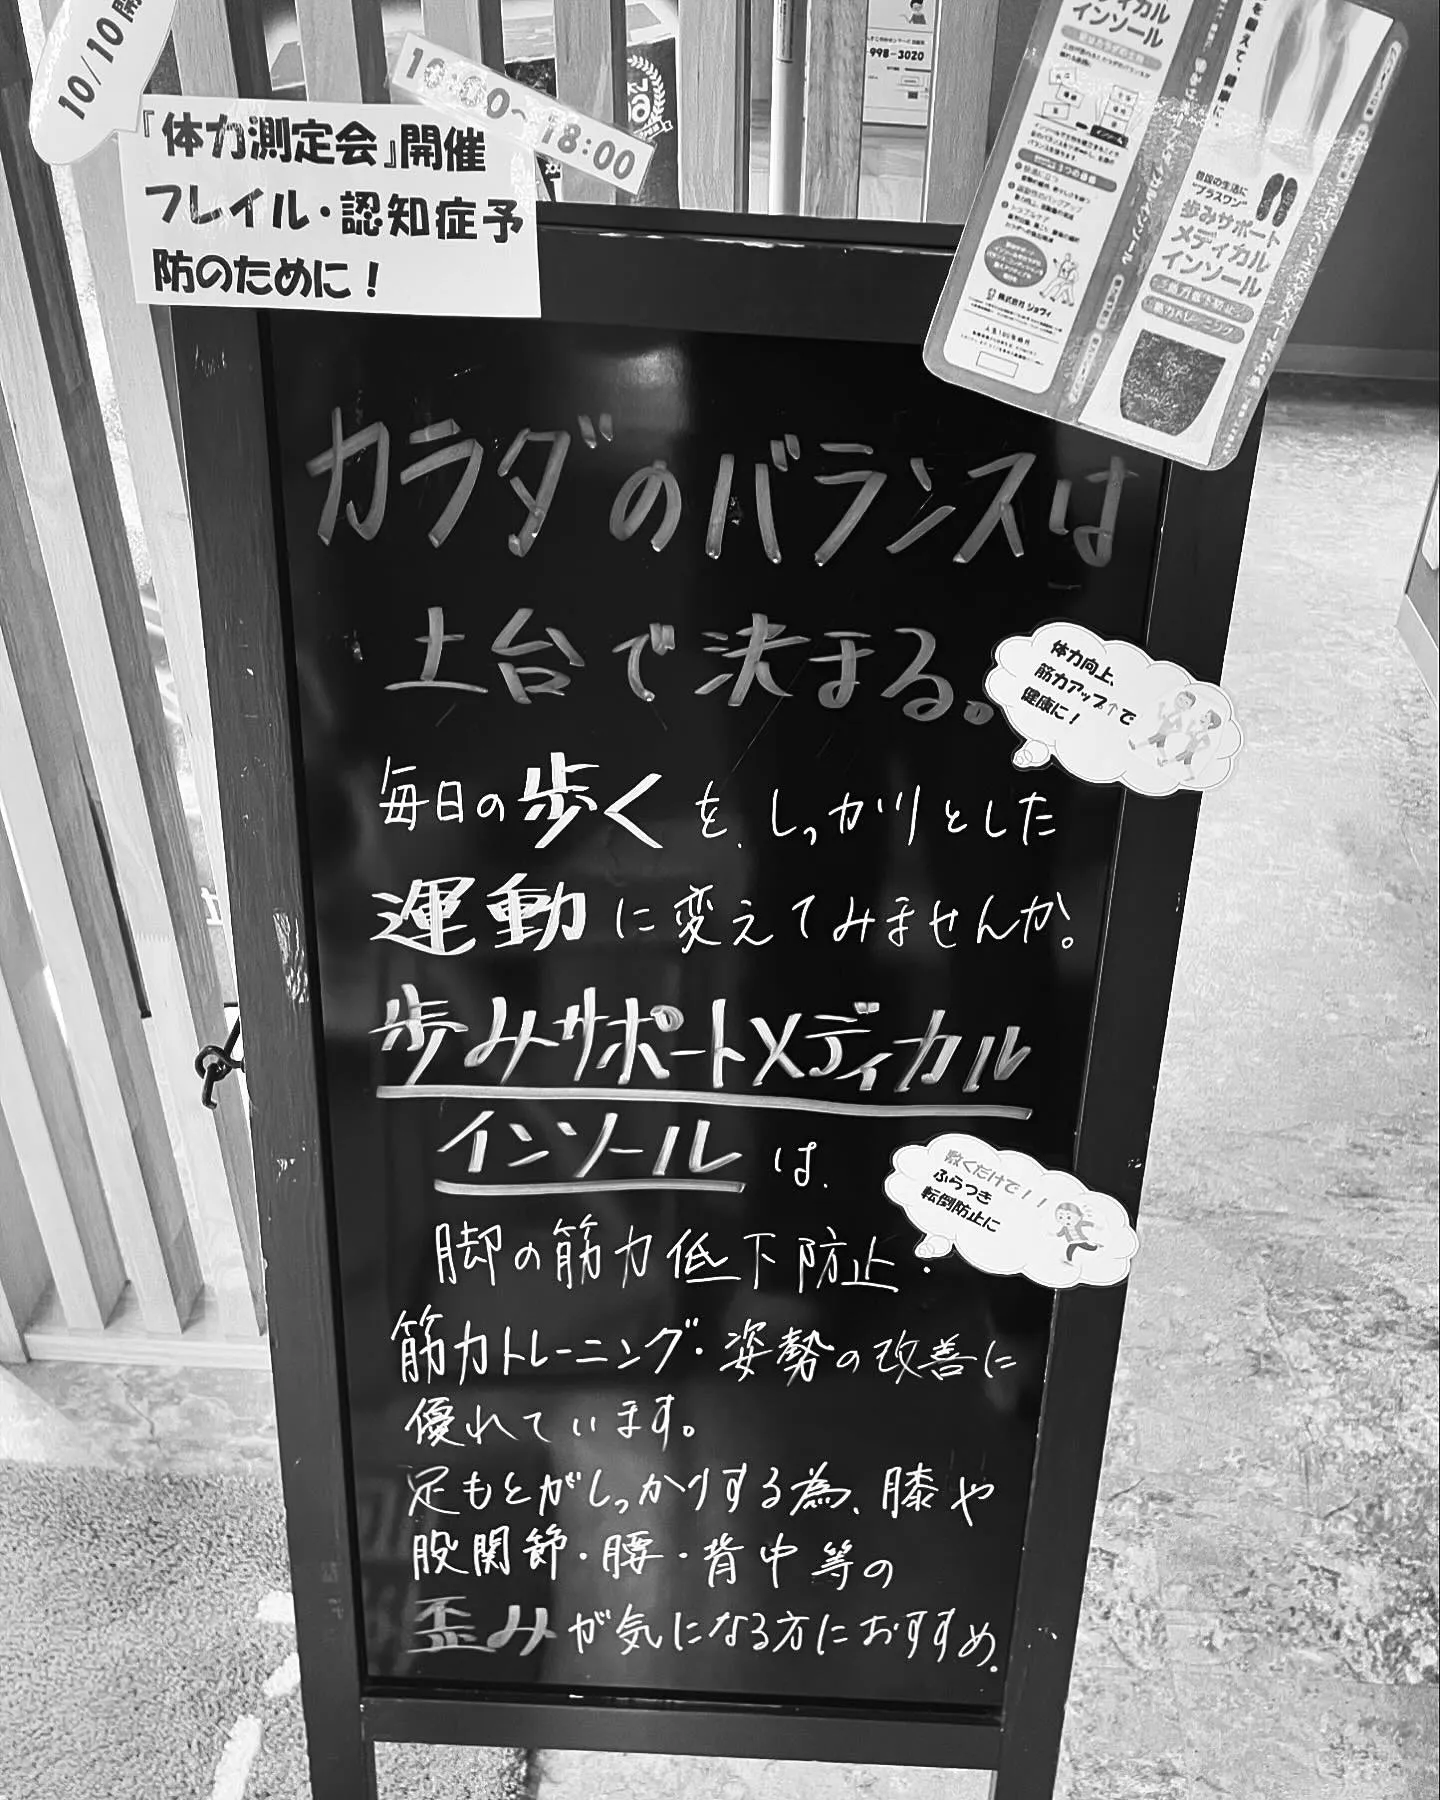 10/10開
10:00~18:00
『体力測定会』開催
フレイル・認知症予
防のために！
998-3020
メディカル
インソール
毎日の生活に
"プラスワン"
歩みサポート
メディカル
インソール
筋力低下防止
筋力トレーニング
株式会社 ジョヴィ
カラダのバランスは
土台で決まる。
体力向上、
筋力アップ↑で
健康に！
毎日の歩くを、しっかりとした
運動に変えてみませんか。
歩みサポートメディカル
インソールは、
敷くだけで！！
ふらつき
転倒防止に
脚の筋力低下防止・
筋力トレーニング・姿勢の改善に
優れています。
足もとがしっかりする為、膝や
股関節・腰・背中等の
歪みが気になる方におすすめ。